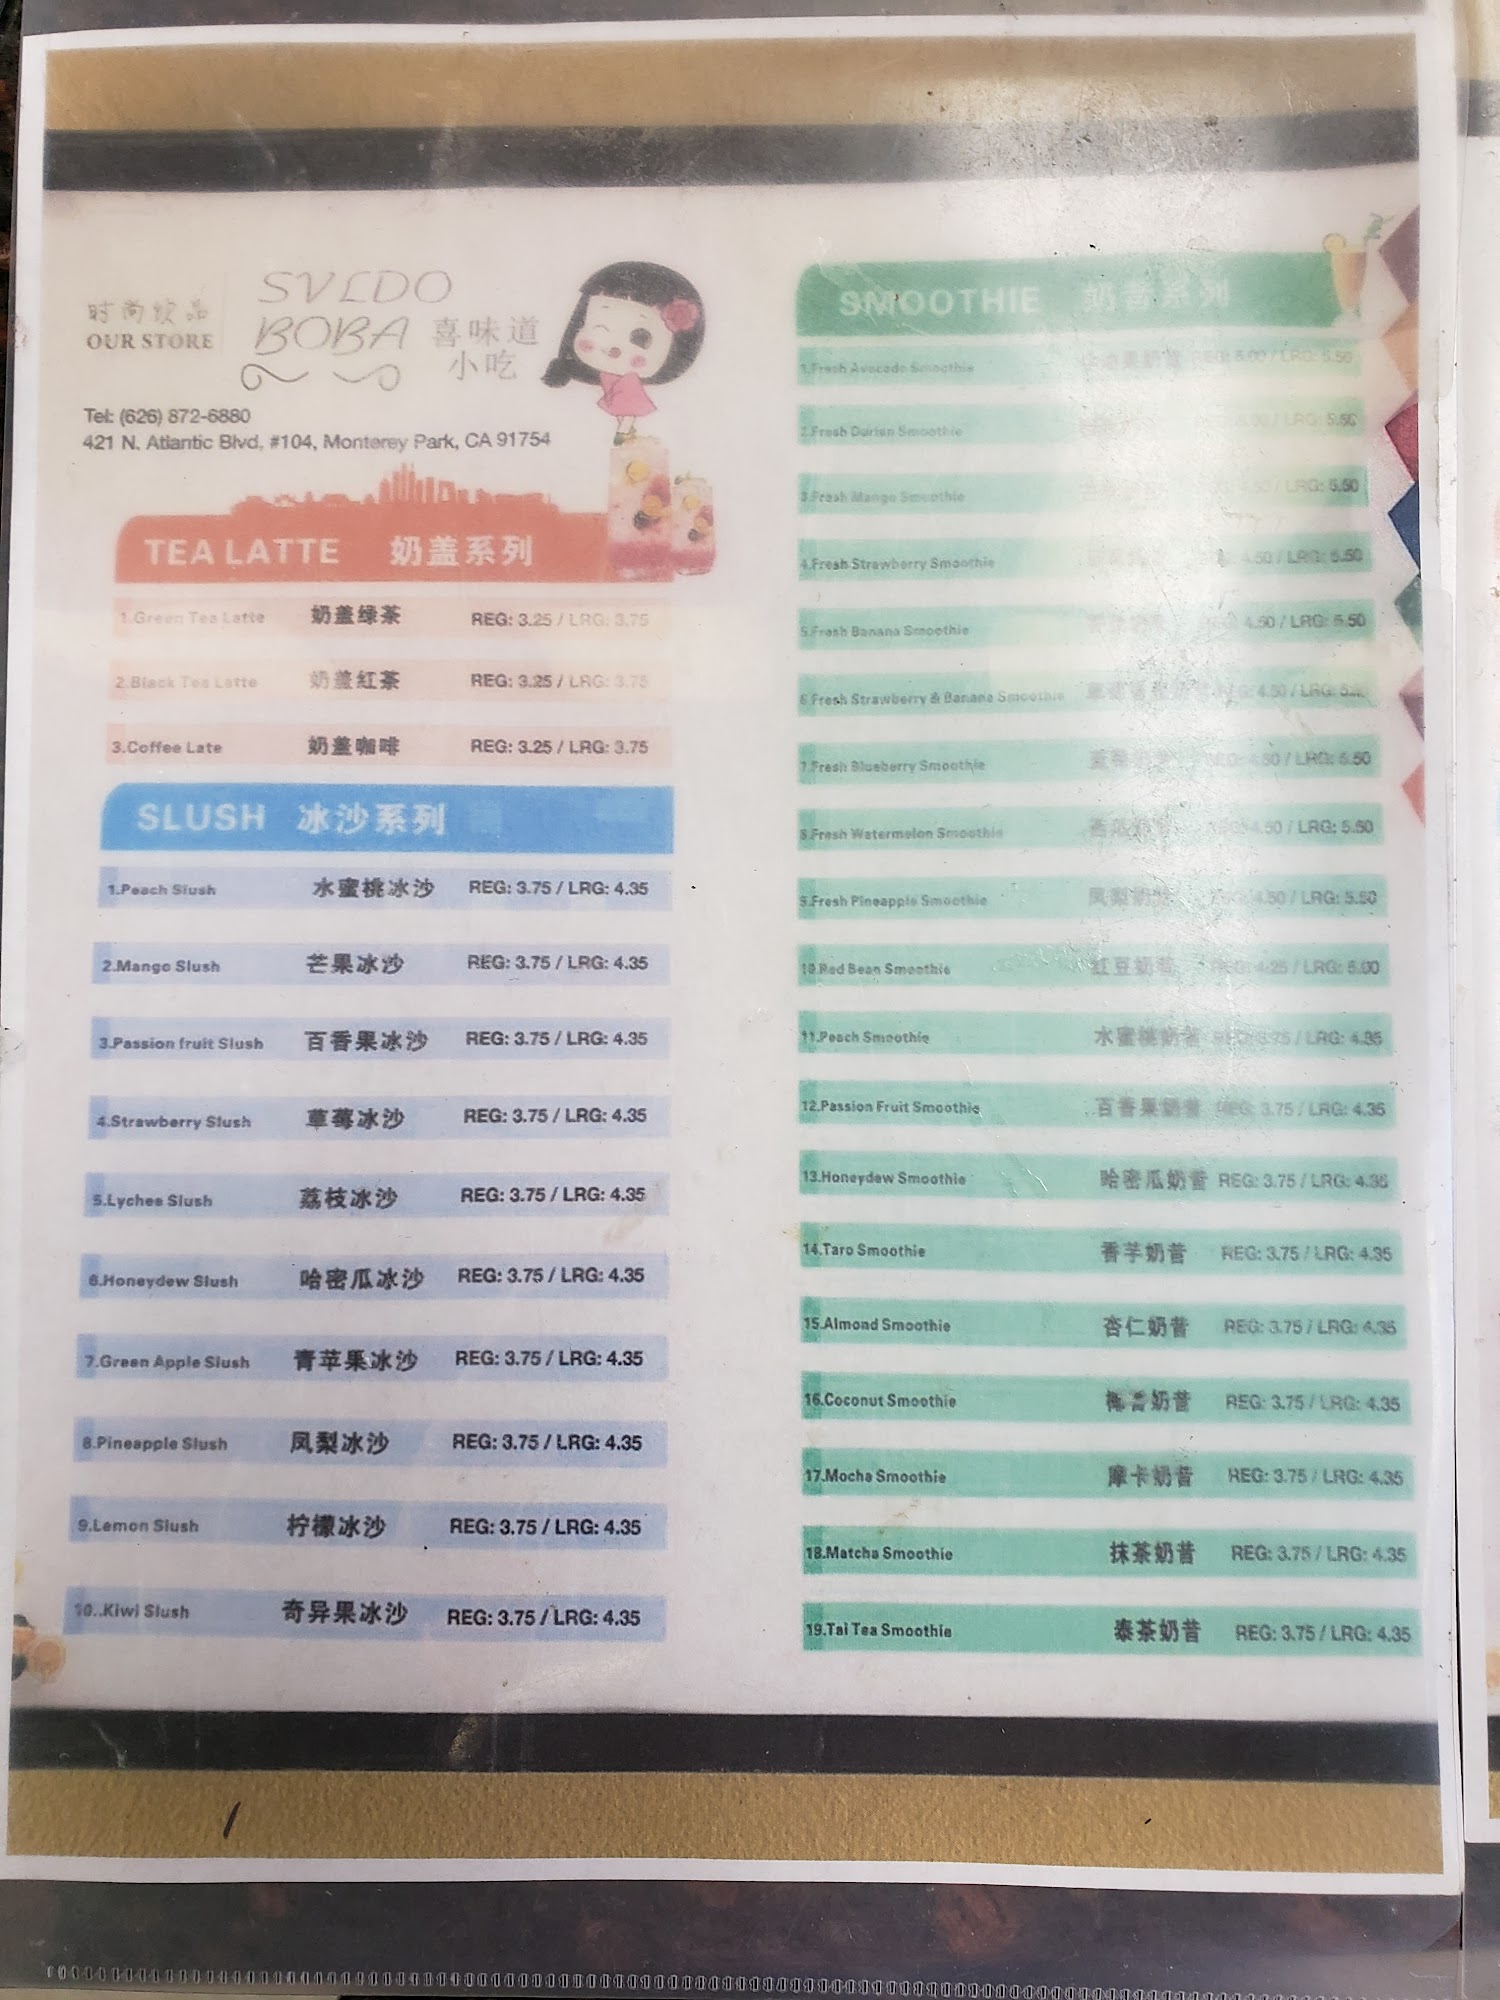 时尚饮品
OUR STORE
SVLDO
BOBA 喜味道
小吃
Tel: (626) 872-6880
421 N. Atlantic Blvd, #104, Monterey Park, CA 91754
TEA LATTE 奶盖系列
1.Green Tea Latte 奶盖绿茶 REG: 3.25 / LRG: 3.75
2.Black Tea Latte 奶盖红茶 REG: 3.25 / LRG: 3.75
3.Coffee Late 奶盖咖啡 REG: 3.25 / LRG: 3.75
SLUSH 冰沙系列
1.Peach Slush 水蜜桃冰沙 REG: 3.75 / LRG: 4.35
2.Mango Slush 芒果冰沙 REG: 3.75 / LRG: 4.35
3.Passion fruit Slush 百香果冰沙 REG: 3.75 / LRG: 4.35
4.Strawberry Slush 草莓冰沙 REG: 3.75 / LRG: 4.35
5.Lychee Slush 荔枝冰沙 REG: 3.75 / LRG: 4.35
6.Honeydew Slush 哈密瓜冰沙 REG: 3.75 / LRG: 4.35
7.Green Apple Slush 青苹果冰沙 REG: 3.75 / LRG: 4.35
8.Pineapple Slush 凤梨冰沙 REG: 3.75 / LRG: 4.35
9.Lemon Slush 柠檬冰沙 REG: 3.75 / LRG: 4.35
10..Kiwi Slush 奇异果冰沙 REG: 3.75 / LRG: 4.35
SMOOTHIE 奶昔系列
1.Fresh Avocado Smoothie LRG: 5.50
2.Fresh Durian Smoothie LRG: 5.50
3.Fresh Mango Smoothie LRG: 5.50
4.Fresh Strawberry Smoothie 4.50 / LRG: 5.50
5.Fresh Banana Smoothie 4.50 / LRG: 5.50
6.Fresh Strawberry & Banana Smoothie REG: 4.50 / LRG:
7.Fresh Blueberry Smoothie 4.50 / LRG: 5.50
8.Fresh Watermelon Smoothie 4.50 / LRG: 5.50
9.Fresh Pineapple Smoothie 凤梨奶昔 4.50 / LRG: 5.50
10.Red Bean Smoothie 红豆奶昔 REG: 4.25 / LRG: 5.00
11.Peach Smoothie 水蜜桃奶昔 REG: 3.75 / LRG: 4.35
12.Passion Fruit Smoothie 百香果奶昔 REG: 3.75 / LRG: 4.35
13.Honeydew Smoothie 哈密瓜奶昔 REG: 3.75 / LRG: 4.35
14.Taro Smoothie 香芋奶昔 REG: 3.75 / LRG: 4.35
15.Almond Smoothie 杏仁奶昔 REG: 3.75 / LRG: 4.35
16.Coconut Smoothie 椰香奶昔 REG: 3.75 / LRG: 4.35
17.Mocha Smoothie 摩卡奶昔 REG: 3.75 / LRG: 4.35
18.Matcha Smoothie 抹茶奶昔 REG: 3.75 / LRG: 4.35
19.Tai Tea Smoothie 泰茶奶昔 REG: 3.75 / LRG: 4.35